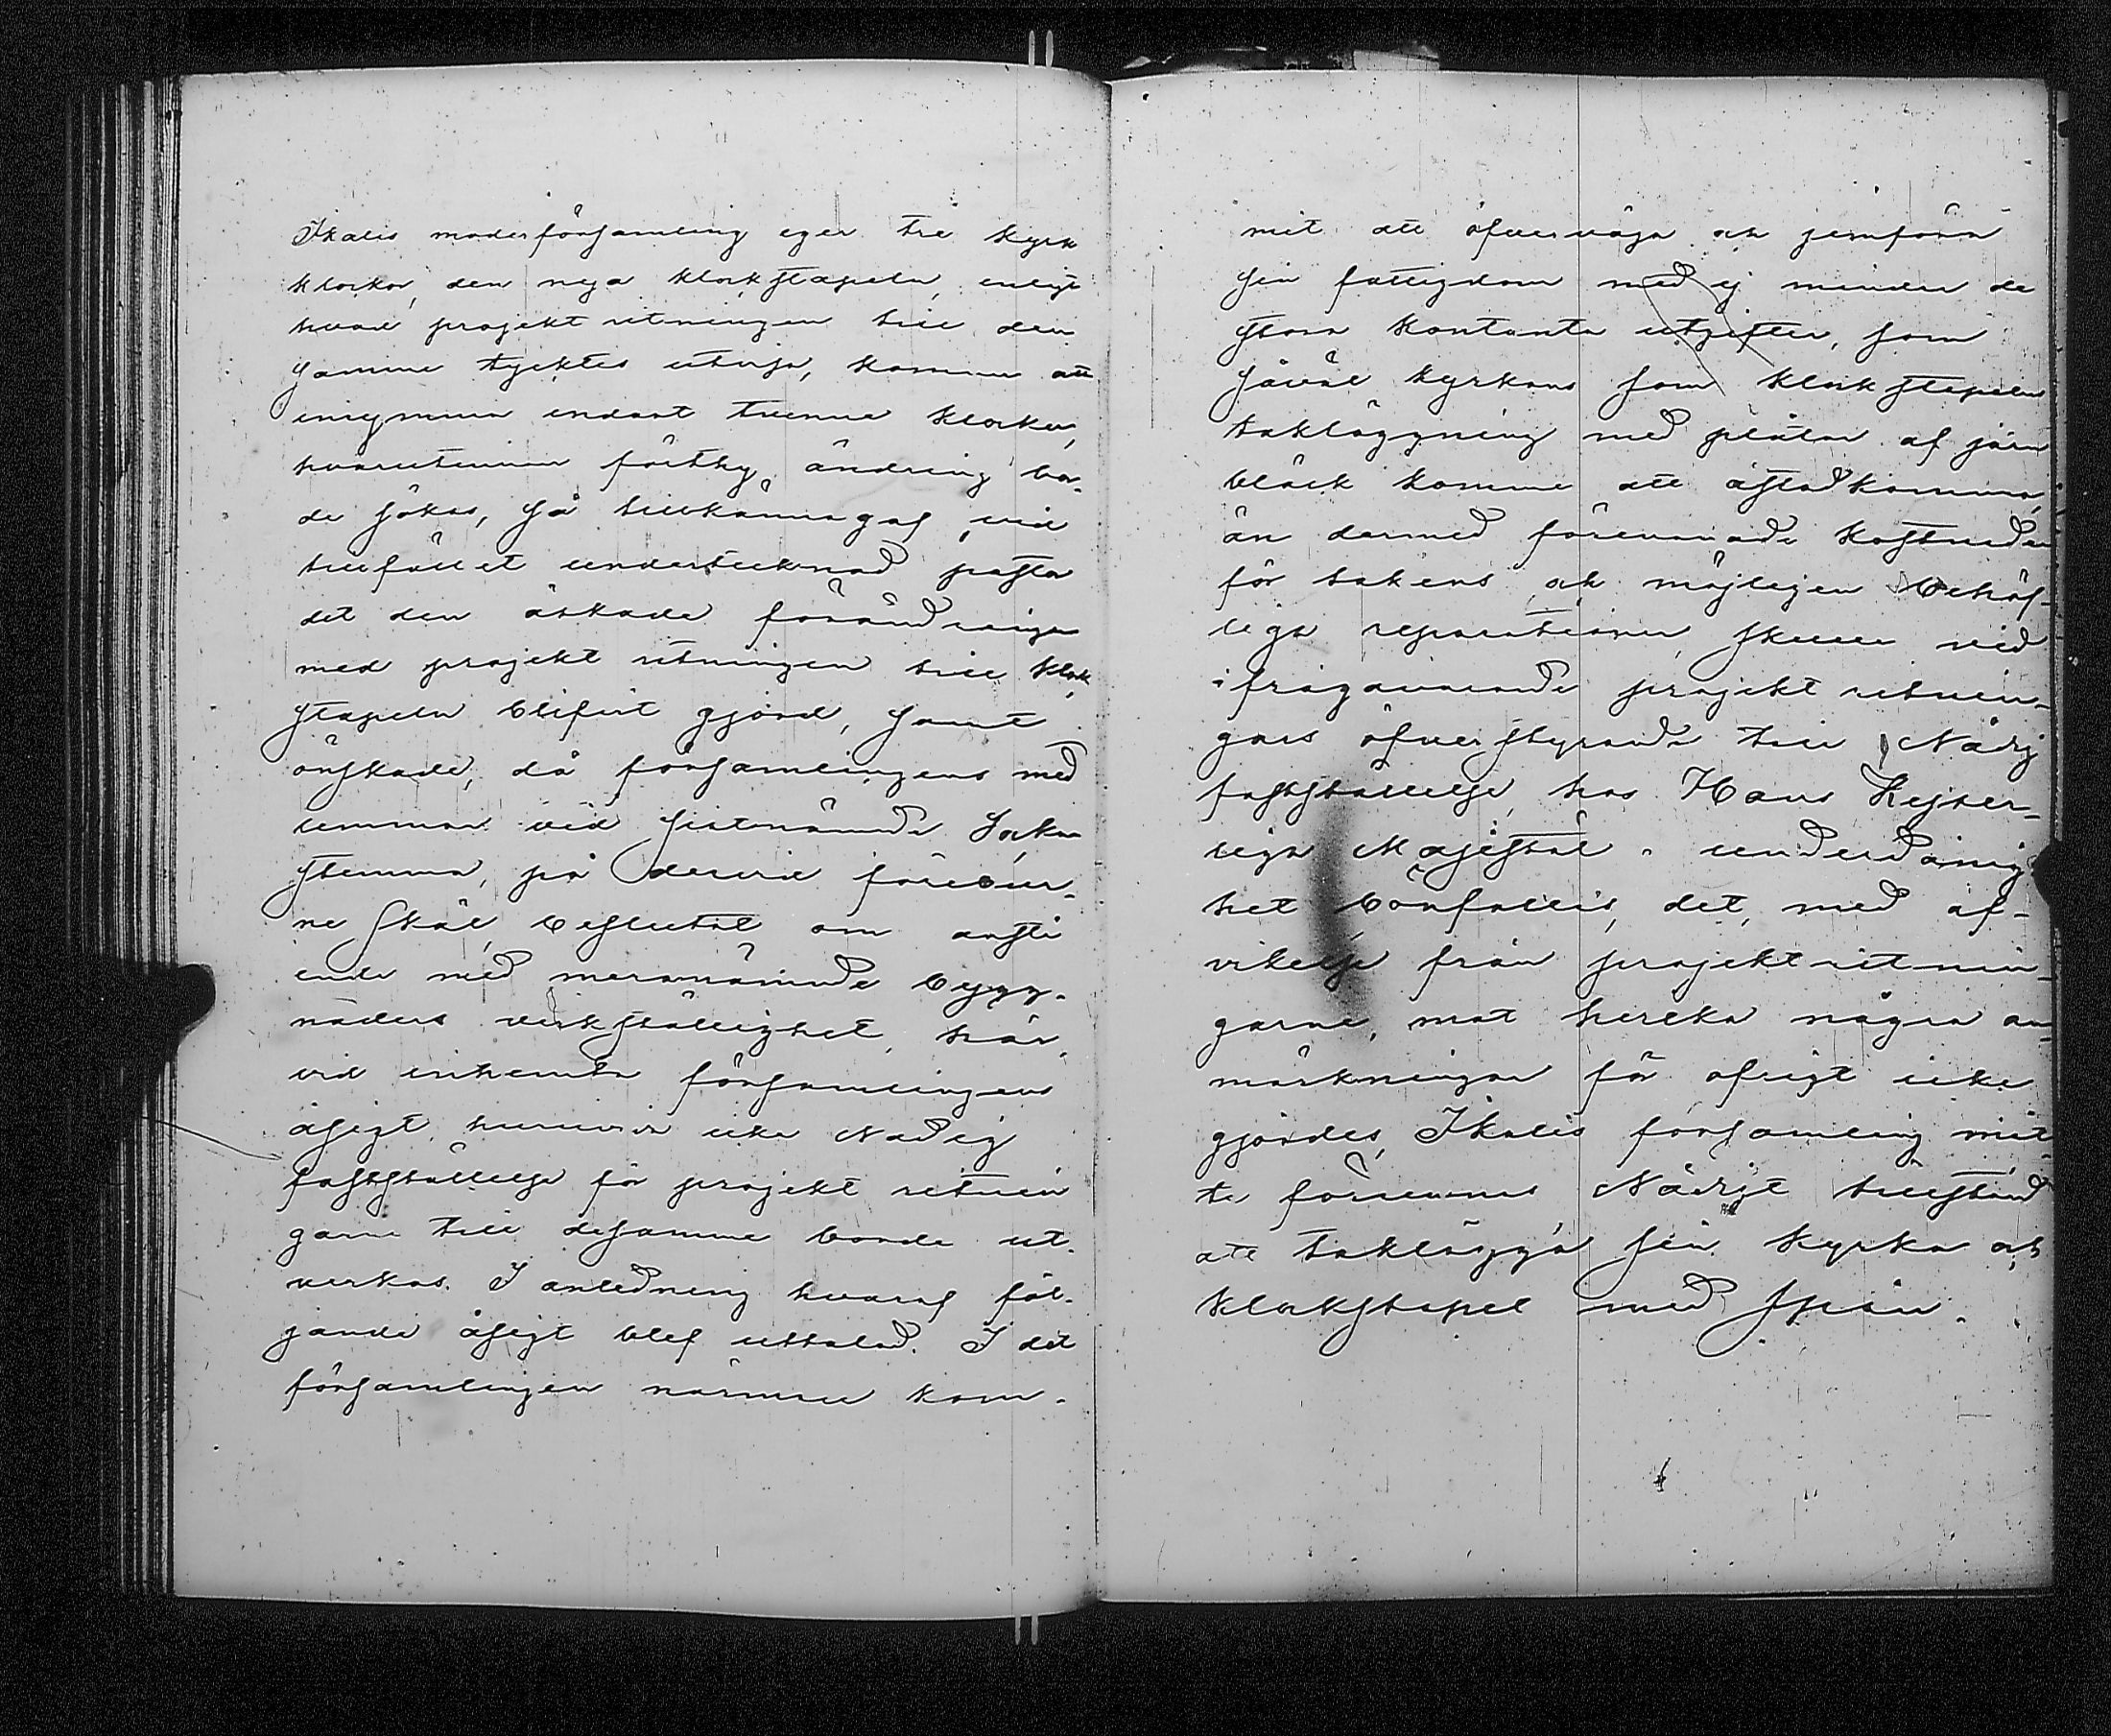 Ikalis moderförsamling eger tre kyrk
klockor, den nya klockstapeln, enligt
hvad projekt ritningen till den
samma tycktes utvisa, komme att
inrymma endast tvenne klockor,
hvarutinnan förthy ändring bor-
de sökas, så tillkännagaf vid
tillfället undertecknad pastor
det den äskade förändringen
med projekt ritningen till klock
stapeln blifvit gjord, samt
önskade, då församlingens med
lemmar vid sistnämnde Sockne
stemma, på dervid föreburr-
ne skäl, beslutat om anstå
ende med mernämnde bygg-
naders verkställighet, här,
vid inhemta församlingens
åsigt, huruvida icke Nådig
fastställelse för projekt ritnin
garne till desamme borde ut-
verkas. I anledning hvaraf föl-
jande åsigt blef uttalad. I det
församlingen närmare kom-
mit att öfverväga och jemföra
sin fattigdom med ej mindre de
stora kontanta utgifter, som
såväl kyrkans som klockstapelns
takläggning med plåtar af järn
bläck komme att åstadkomma,
än dermed förenade kostnader
för takens och möjligen behöf-
liga reparationer, skulle vid
ifrågavarande projekt ritnin-
gars öfverstyrande till Nådig
fastställelse, hos Hans Kejser-
liga Majestät i underdånig-
het bönfallas, det, med af-
vikelse från projektritnin-
garne, mot hvilka några an-
märkningar för öfrigt icke
gjordes, Ikalis församling måt-
te förunnas Nådigt tillstånd
att taklägga sin kyrka och
klockstapel med Spån.